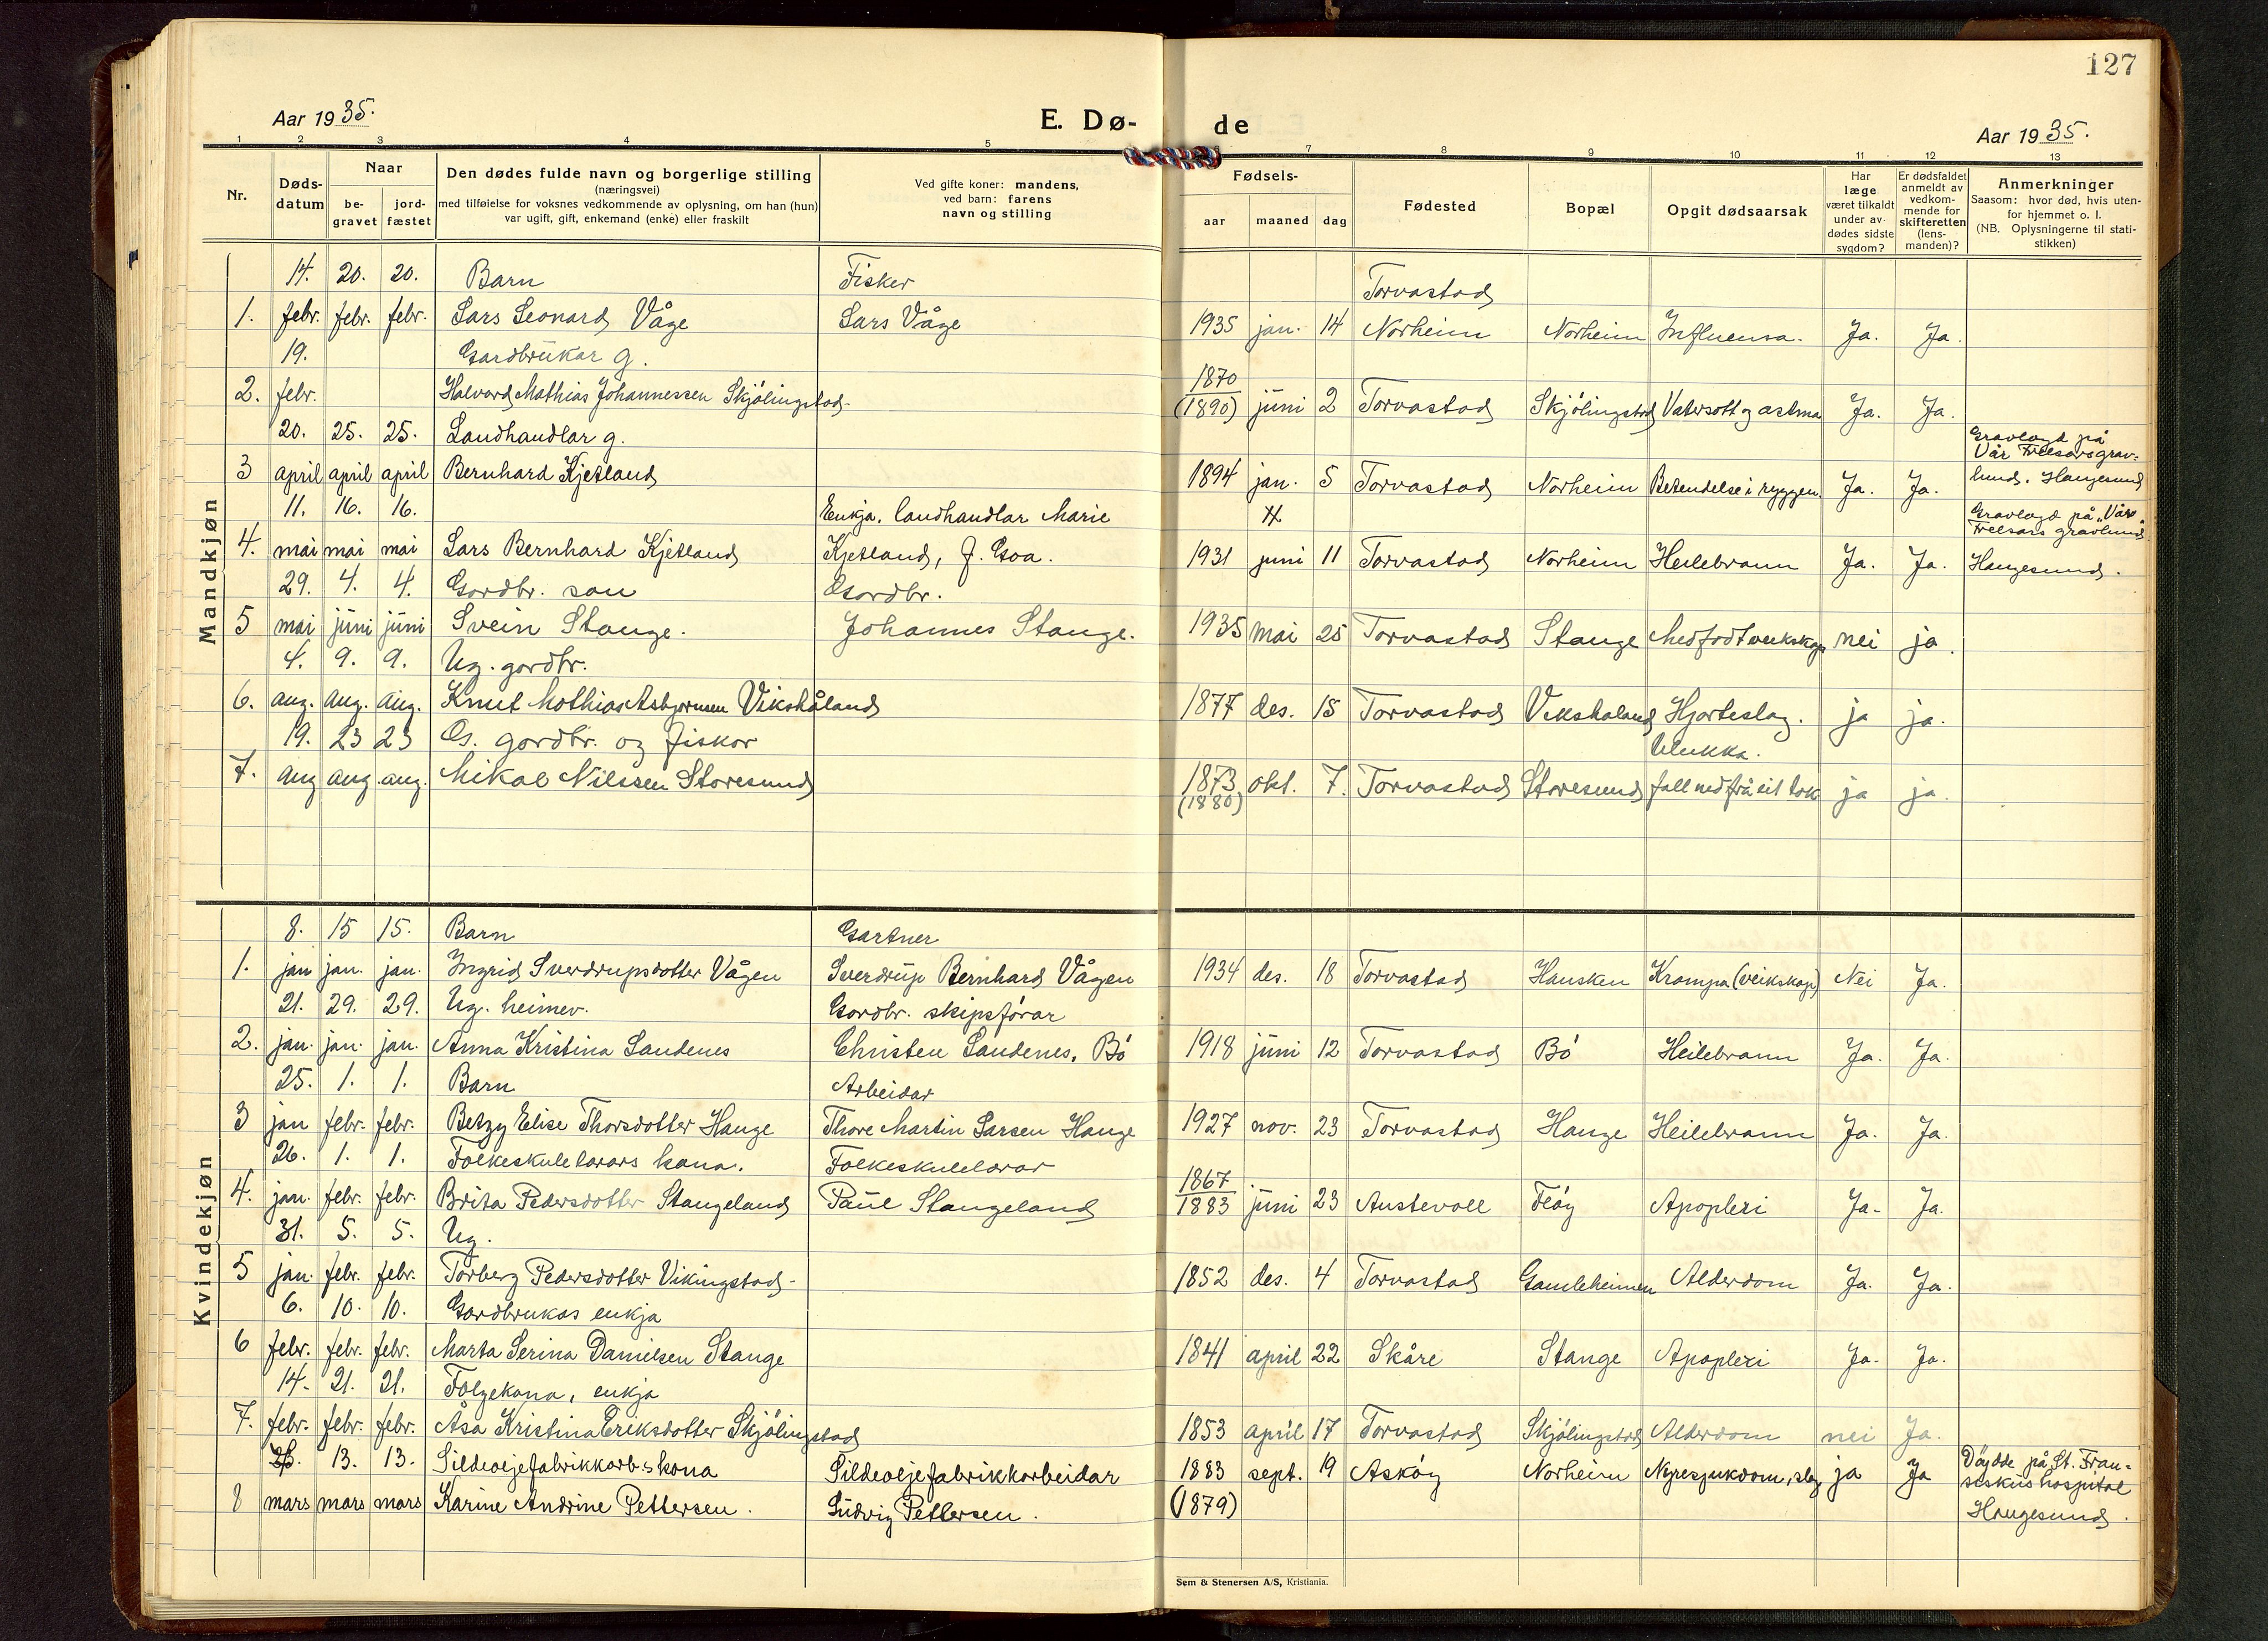 127
Aar 1935.
E. Dø-
de
Aar 1935.
1 2 3 4 5 7 8 9 10 11 12 13
Nr.
Døds-
datum
Naar
be-
gravet
jord-
fæstet
Den dødes fulde navn og borgerlige stilling
(næringsvei)
med tilføielse for voksnes vedkommende av oplysning, om han (hun)
var ugift, gift, enkemand (enke) eller fraskilt
Ved gifte koner: mandens,
ved barn: farens
navn og stilling
Fødsels-
aar maaned dag
Fødested
Bopæl
Opgit dødsaarsak
Har
læge
været tilkaldt
under av-
dødes sidste
sygdom?
Er dødsfaldet
anmeldt av
vedkom-
mende for
skifteretten
(lens-
manden)?
Anmerkninger
Saasom: hvor død, hvis uten-
for hjemmet o. l.
(NB. Oplysningerne til stati-
stikken)
Mandkjøn
14. 20. 20. Barn Fisker Torvastad
1. febr. febr. febr. Lars Leonard Våge Lars Våge 1935 jan. 14 Norheim Norheim Influensa. Ja. Ja.
19. Gardbrukar g.
2. febr. Halvard Mathias Johannessen Skjölingstad 1870 (1890) juni 2 Torvastad Skjölingstad Vatersott og astma Ja. Ja.
20. 25. 25. Landhandlar g. Gravlagd på
Vår Frelsars grav-
3 april april april Bernhard Kjetland 1894 jan. 5 Torvastad Norheim Betendelse i ryggen. Ja. Ja. lund. Haugesund
11. 16. 16. Enkja. landhandlar Marie Gravlagd på "Vår
Frelsars gravlund"
4. mai mai mai Lars Bernhard Kjetland Kjetland, f. Goa. 1931 juni 11 Torvastad Norheim Heilebrann Ja. Ja. Haugesund.
29. 4. 4. Gardbr. son Gardbr.
5 mai juni juni Svein Stange. Johannes Stange. 1935 mai 25 Torvastad Stange Medfödt veikskap nei ja.
4. 9. 9. Ug. gardbr.
6. aug. aug. aug. Knut Mathias Asbjørnsen Vikshåland 1877 des. 15 Torvastad Vikshaland Hjarteslag. ja ja.
19. 23 23 G. gardbr. og fiskar Ulukka.
7. aug aug. aug. Mikal Nilssen Storesund 1873 (1880) okt. 7. Torvastad Storesund fall ned frå eit tak ja ja.
Kvindekjøn
8. 15 15. Barn Gartner
1. jan jan. jan. Ingrid Sverdrupsdotter Vågen Sverdrup Bernhard Vågen 1934 des. 18 Torvastad Hausken Krampa (veikskap) Nei Ja.
21. 29. 29. Ug. heimev. Gardbr. skipsförar
2. jan. jan. jan. Anna Kristina Sandenes Christen Sandenes, Bö 1918 juni 12 Torvastad Bö Heilebrann Ja. Ja.
25. 1. 1. Barn Arbeidar
3 jan febr. febr. Betzy Elise Thorsdotter Hauge Thore Martin Larsen Hauge 1927 nov. 23 Torvastad Hauge Heilebrann Ja. Ja.
26. 1. 1. Folkeskulelærars kona. Folkeskulelærar
4. jan. febr. febr. Brita Pedersdotter Stangeland Paul Stangeland 1867 1883 juni 23 Austevoll Flöy Apoplexi Ja. Ja.
31. 5. 5. Ug.
5 jan. febr. febr. Torberg Pedersdotter Vikingstad. 1852 des. 4 Torvastad Gamleheimen Alderdom Ja. Ja.
6. 10. 10. Gardbrukas enkja
6 febr. febr. febr. Marta Serina Danielsen Stange 1841 april 22 Skåre Stange Apoplexi Ja. Ja.
14. 21. 21. Fölgekona, enkja
7. febr. febr. febr. Åsa Kristina Eriksdotter Skjölingstad 1853 april 17 Torvastad Skjölingstad Alderdom nei Ja.
13. 13. Sildeoljefabrikkarb.s kona Sildeoljefabrikkarbeidar 1883 sept. 19 Asköy Norheim Nyresjukdom, slag ja Ja Döydde på St. Fran-
siskus hospital
8 mars mars mars Karine Andrine Pettersen. Ludvig Pettersen. (1879) Haugesund.
Sem & Stenersen A/S, Kristiania.